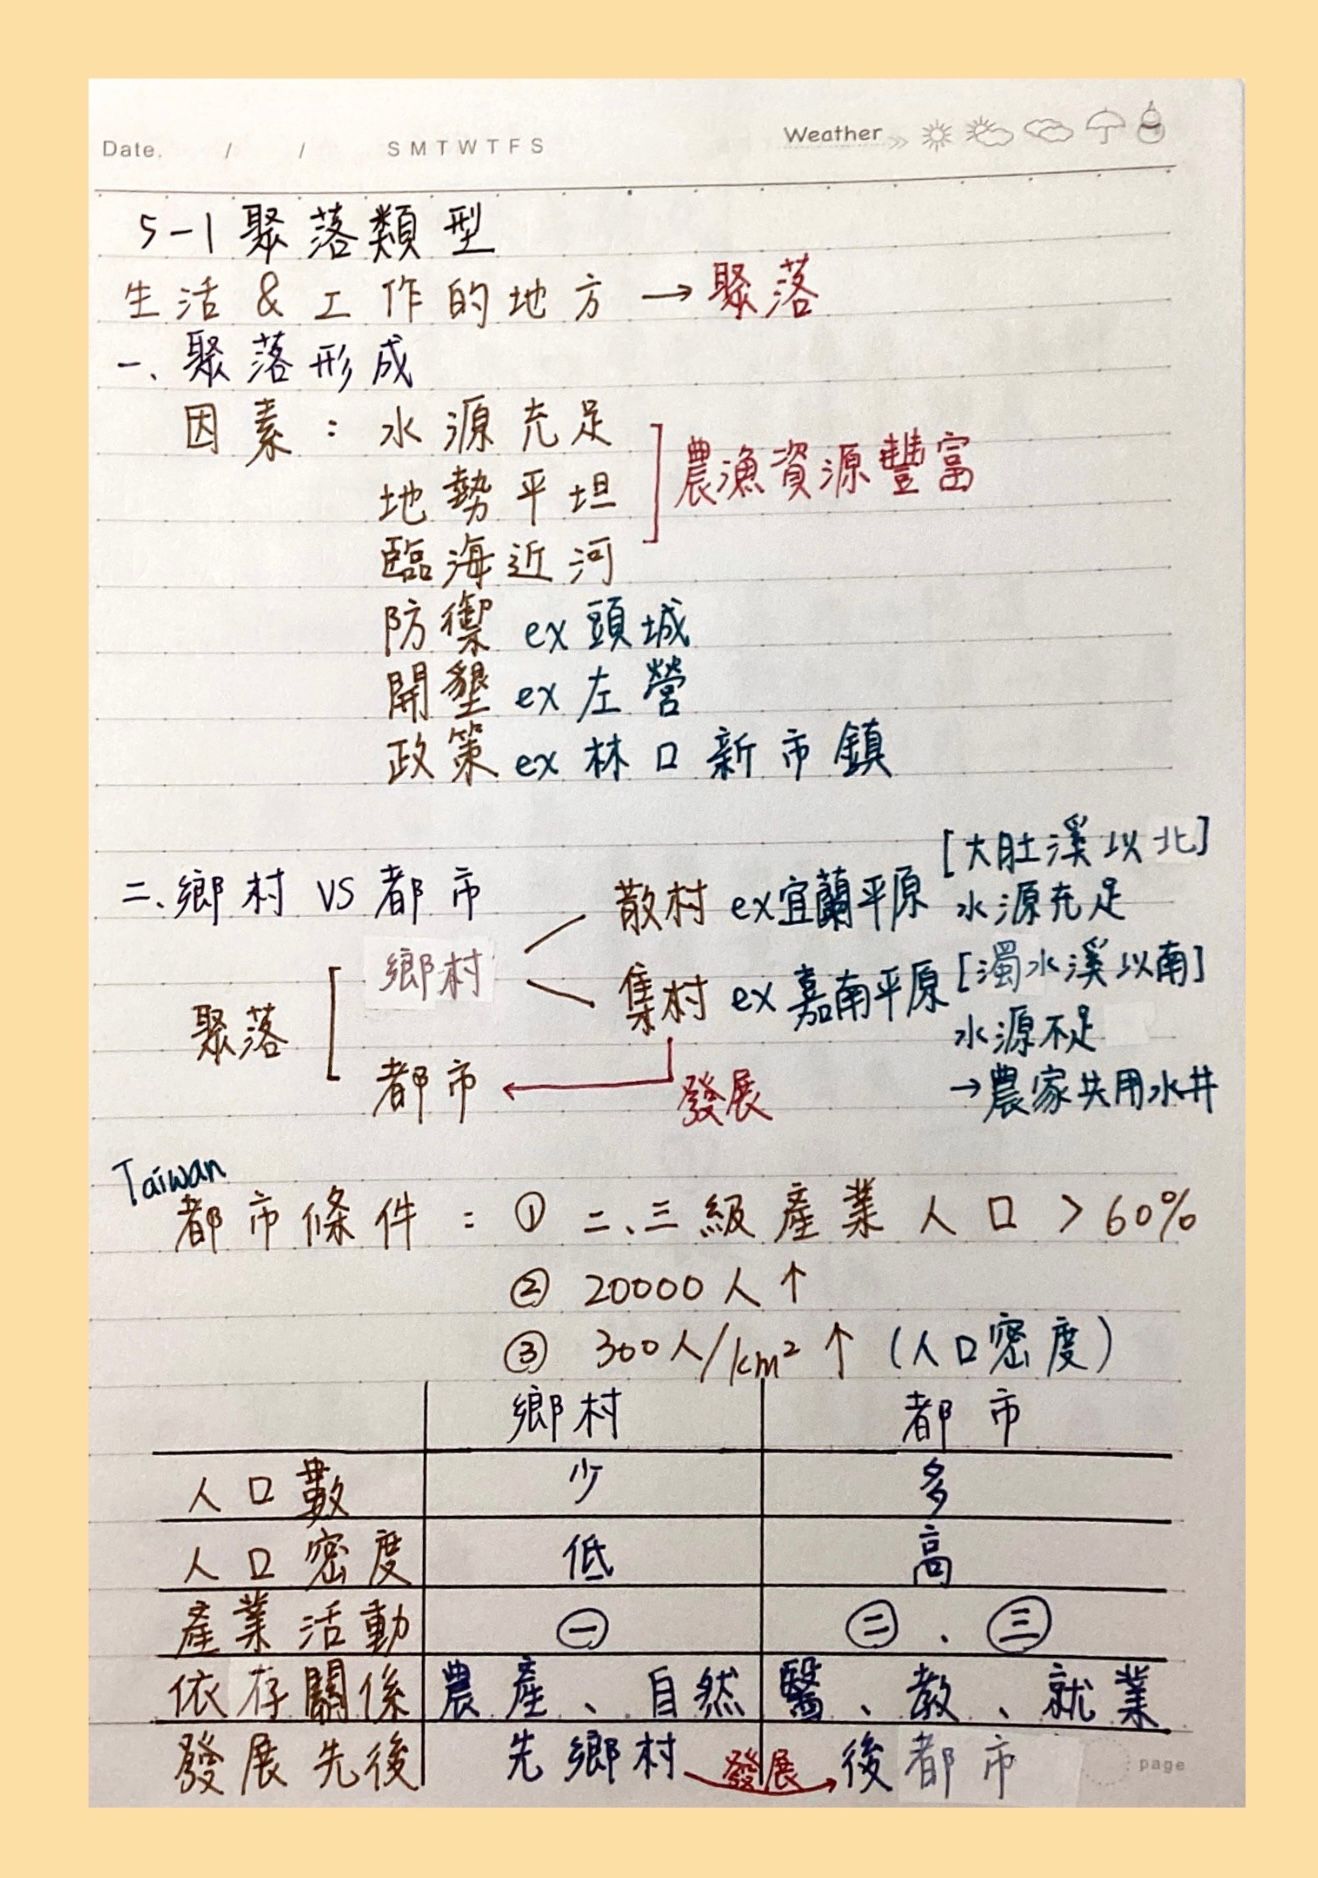 Date. / / S M T W T F S Weather
5-1 聚落類型
生活 & 工作的地方 → 聚落
一、聚落形成
因素：水源充足
地勢平坦
臨海近河
農漁資源豐富
防禦 ex 頭城
開墾 ex 左營
政策 ex 林口新市鎮
二、鄉村 VS 都市
聚落
鄉村
散村 ex 宜蘭平原 [大肚溪以北]
水源充足
集村 ex 嘉南平原 [濁水溪以南]
水源不足
→ 農家共用水井
都市 ← 發展
Taiwan
都市條件：① 二、三級產業人口 > 60%
② 20000人↑
③ 300人/km²↑ (人口密度)
鄉村 都市
人口數 少 多
人口密度 低 高
產業活動 ㊀ ㊁、㊂
依存關係 農產、自然 醫、教、就業
發展先後 先鄉村 發展→ 後都市
page